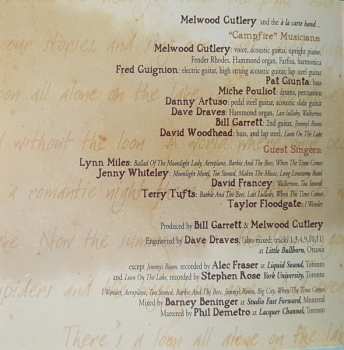 Melwood Cutlery and the à la carte band...
"Campfire" Musicians
Melwood Cutlery: voice, acoustic guitar, upright piano,
Fender Rhodes, Hammond organ, Farfisa, harmonica
Fred Guignion: electric guitar, high string acoustic guitar, lap steel guitar
Pat Giunta: bass
Miche Pouliot: drums, percussion
Danny Artuso: pedal steel guitar, acoustic slide guitar
Dave Draves: Hammond organ, Last Lullaby, Walkerton
Bill Garrett: 2nd guitar, Jimmy's Room
David Woodhead: bass, and lap steel, Loon On The Lake
Guest Singers
Lynn Miles: Ballad Of The Moonlight Lady, Aeroplane, Barbie And The Boy, When The Time Comes
Jenny Whiteley: Moonlight Motel, Too Stoned, Makes The Music, Long Lonesome Road
David Francey: Walkerton, Too Stoned
Terry Tufts: Barbie And The Boy, Last Lullaby, When The Time Comes
Taylor Floodgate: I Wonder
Produced by Bill Garrett & Melwood Cutlery
Engineered by Dave Draves, (also mixed; tracks
at Little Bullhorn, Ottawa
except Jimmy's Room, recorded by Alec Fraser at Liquid Sound, Toronto
and Loon On The Lake, recorded by Stephen Rose York University, Toronto
I Wonder, Aeroplane, Too Stoned, Barbie And The Boy, Jimmy's Room, Big City, When The Time Comes,
Mixed by Barney Beninger at Studio Fast Forward, Montreal
Mastered by Phil Demetro at Lacquer Channel, Toronto
your stories and
alone on the lake
without the loon
a world
a romantic night
Now the sun
spiders and
There's a loon all alone on the